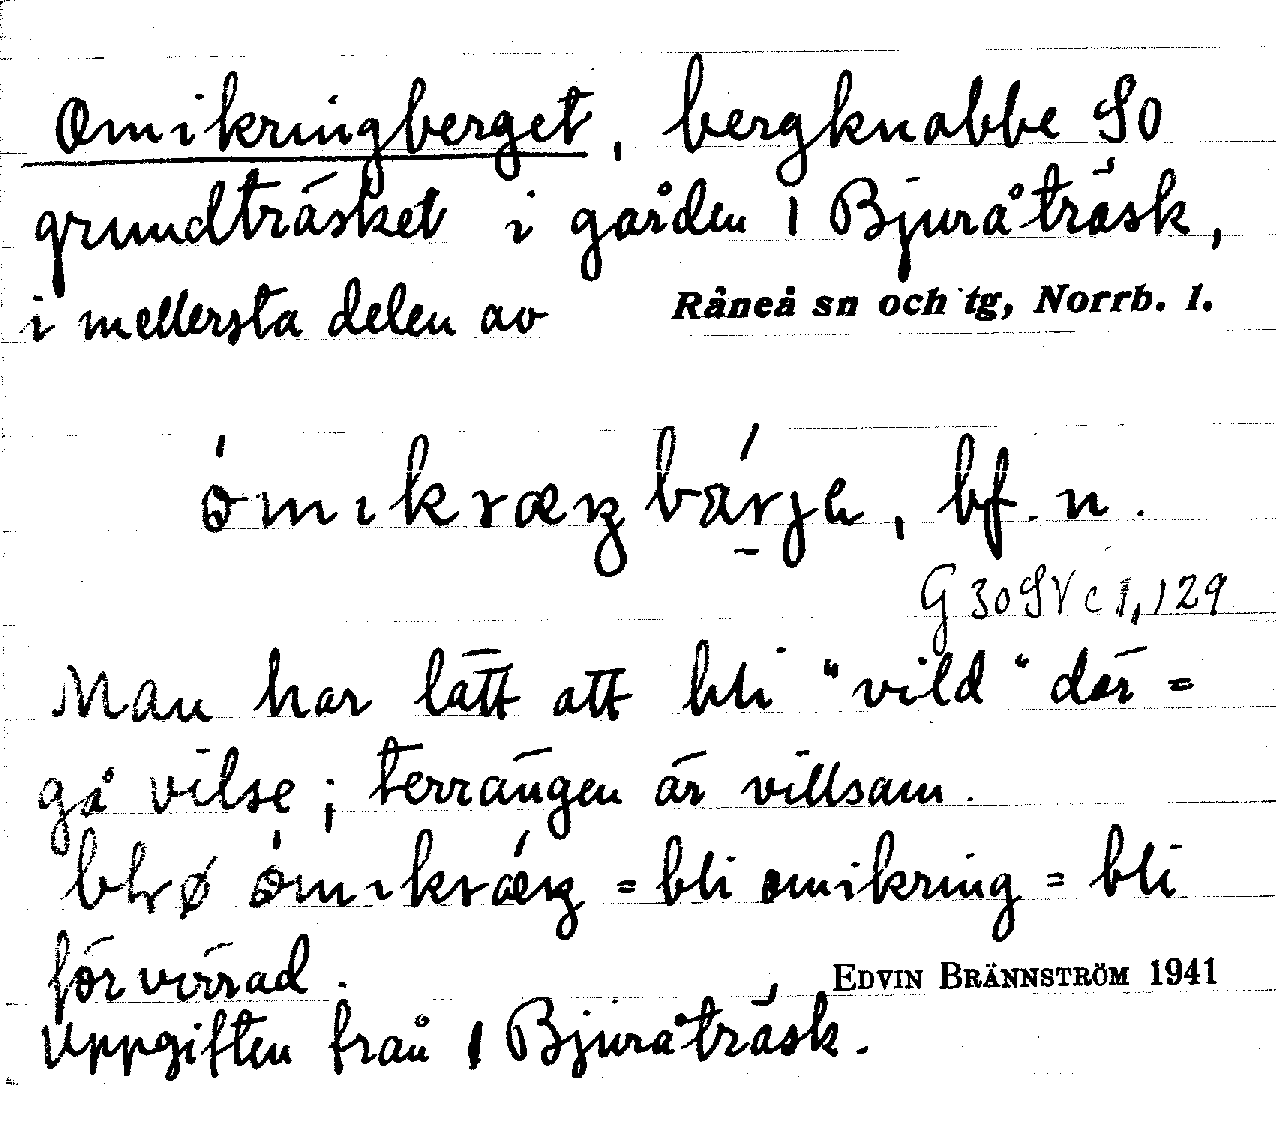 Omikringberget, bergknabbe SO
grundträsket i gården 1 Bjuråträsk,
i mellersta delen av Råneå sn och tg, Norrb. l.
bf. n.
G 30 SV c 1, 129
Man har lätt att bli "vild" där =
gå vilse; terrängen är villsam.
= bli omikring = bli
förvirrad.
EDVIN BRÄNNSTRÖM 1941
Uppgiften från 1 Bjuråträsk.